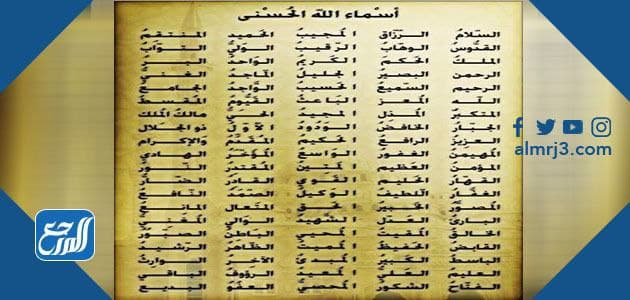 أسماء الله الحُسْنى
السلامُ الرّزاق المجيبُ الحميد المنتقمُ
القدّوسُ الوهابُ الرّقيبُ الوليّ التوّابُ
الملكُ الحكمُ الكريمُ الواحدُ البر
الرحمن البصيرُ الجليلُ الماجدُ الغني
الرحيم السميعُ الحسيبُ الواجدُ الجامعُ
الله المعز الباعثُ القيّومُ المقسط
المتكبرُ المذل المجيدُ الحيّ مالكُ الملك
الجبّار الخافضُ الودودُ الأول ذو الجلال
العزيز الرافعُ الحكيمُ المقدّمُ والإكرام
المهيمنُ الغفور الواسعُ المؤخّرُ الهادي
المؤمنُ العظيمُ المتينُ المقتدرُ النّور
القهارُ الحليم القويّ القادر الضّار
الغفّارُ اللطيفُ الوكيلُ الصّمدُ النّافع
المصوّر الخبيرُ الحق المتعال المانع
البارئ العدل الشهيدُ الوالي المغني
الخالق المقيت المحيي الباطنُ الصبور
القابض الحفيظُ المميتُ الظاهرُ الرشيدُ
الباسط الكبيرُ المبدئ الآخر الوارث
العليم العلي المعيد الرؤوفُ الباقي
الفتاح الشكور المحصي العفو البديع
almrj3.com
المرجع